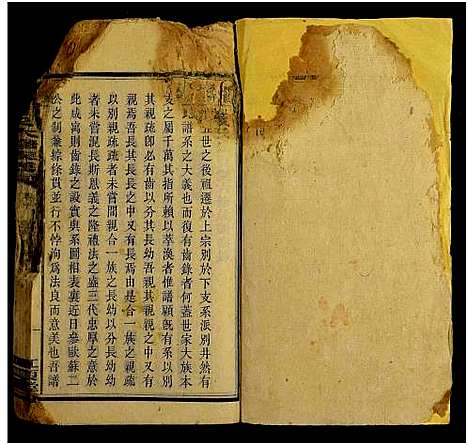 五世之後祖遷於上宗別於下支系派別井然有
此譜系之大義也而復有齒錄者何蓋世家大族本
支之屬千萬其指所賴以萃渙者惟譜顧既有系以別
其親疏即必有齒以分其長幼吾親其親親之中又有
親焉吾長其長長之中又有長焉由是合一族之親疏
以別親疏疏者未嘗間親合一族之長幼以分長幼幼
者未嘗混長斯恩義之隆禮法之盛三代忠厚之意於
此成寓則齒錄之設實與系圖相表裏近日參歐蘇二
公之制兼綜條貫並行不悖洵為法良而意美也吾譜